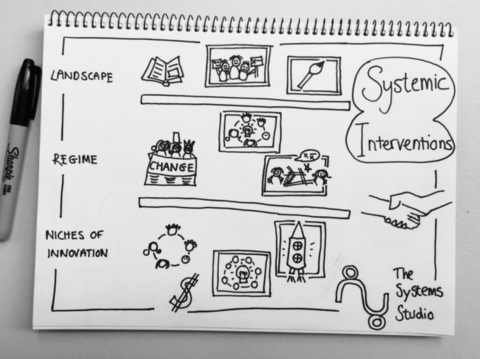 LANDSCAPE
Systemic
Interventions
REGIME
CHANGE
NICHES OF
INNOVATION
$
The
Systems
Studio
Sharpie